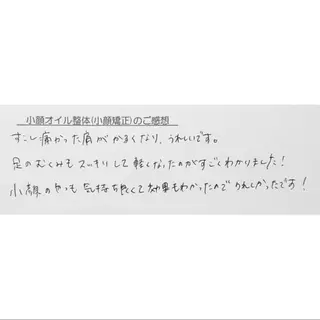 小顔オイル整体(小顔矯正)のご感想
すごし痛かった肩がかるくなり、うれしいです。
足のむくみもスッキリして軽くなったのがすごくわかりました!
小顔のやつも気持ち良くて効果もわかったのでうれしかったです!